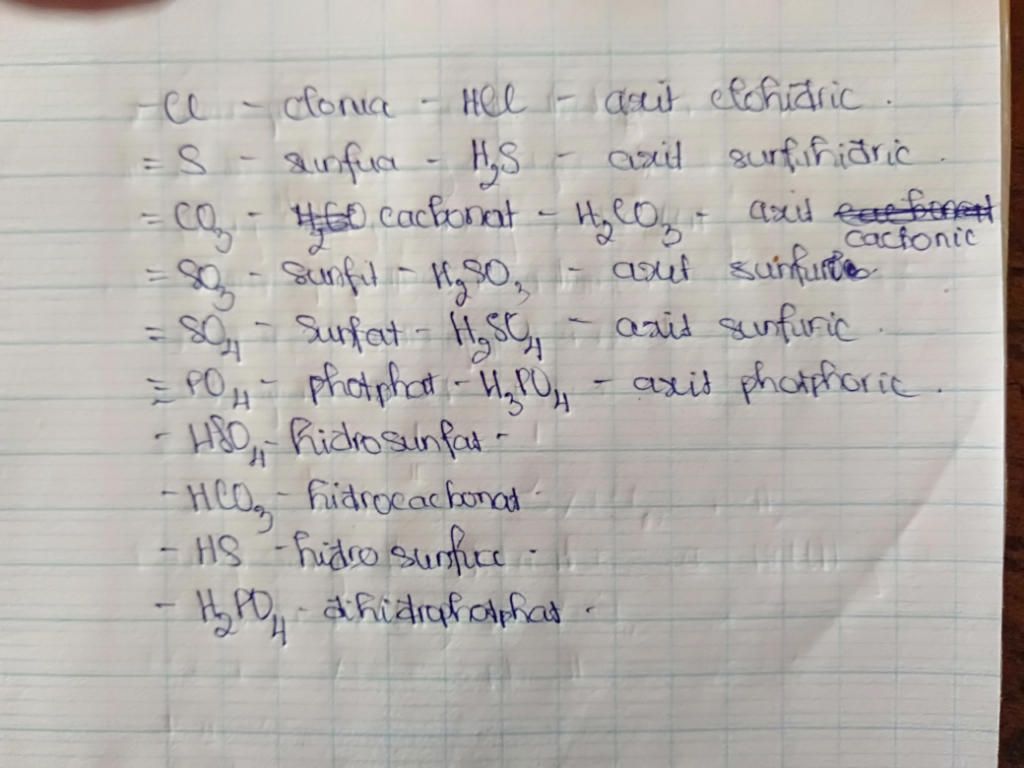 - Cl - clorua - HCl - axit clohidric.
= S - sunfua - H₂S - axit sunfuhidric.
= CO₃ - cacbonat - H₂CO₃ - axit cacbonic
= SO₃ - sunfit - H₂SO₃ - axit
= SO₄ - sunfat - H₂SO₄ - axit sunfuric.
≡ PO₄ - photphat - H₃PO₄ - axit photphoric.
- HSO₄ - hidrosunfat -
- HCO₃ - hidrocacbonat -
- HS - hidro sunfua -
- H₂PO₄ - đihidrophotphat -